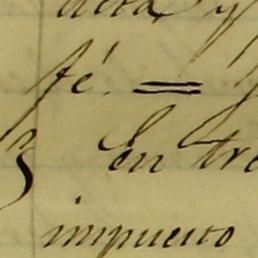 y
fé. =
En tre
impuesto